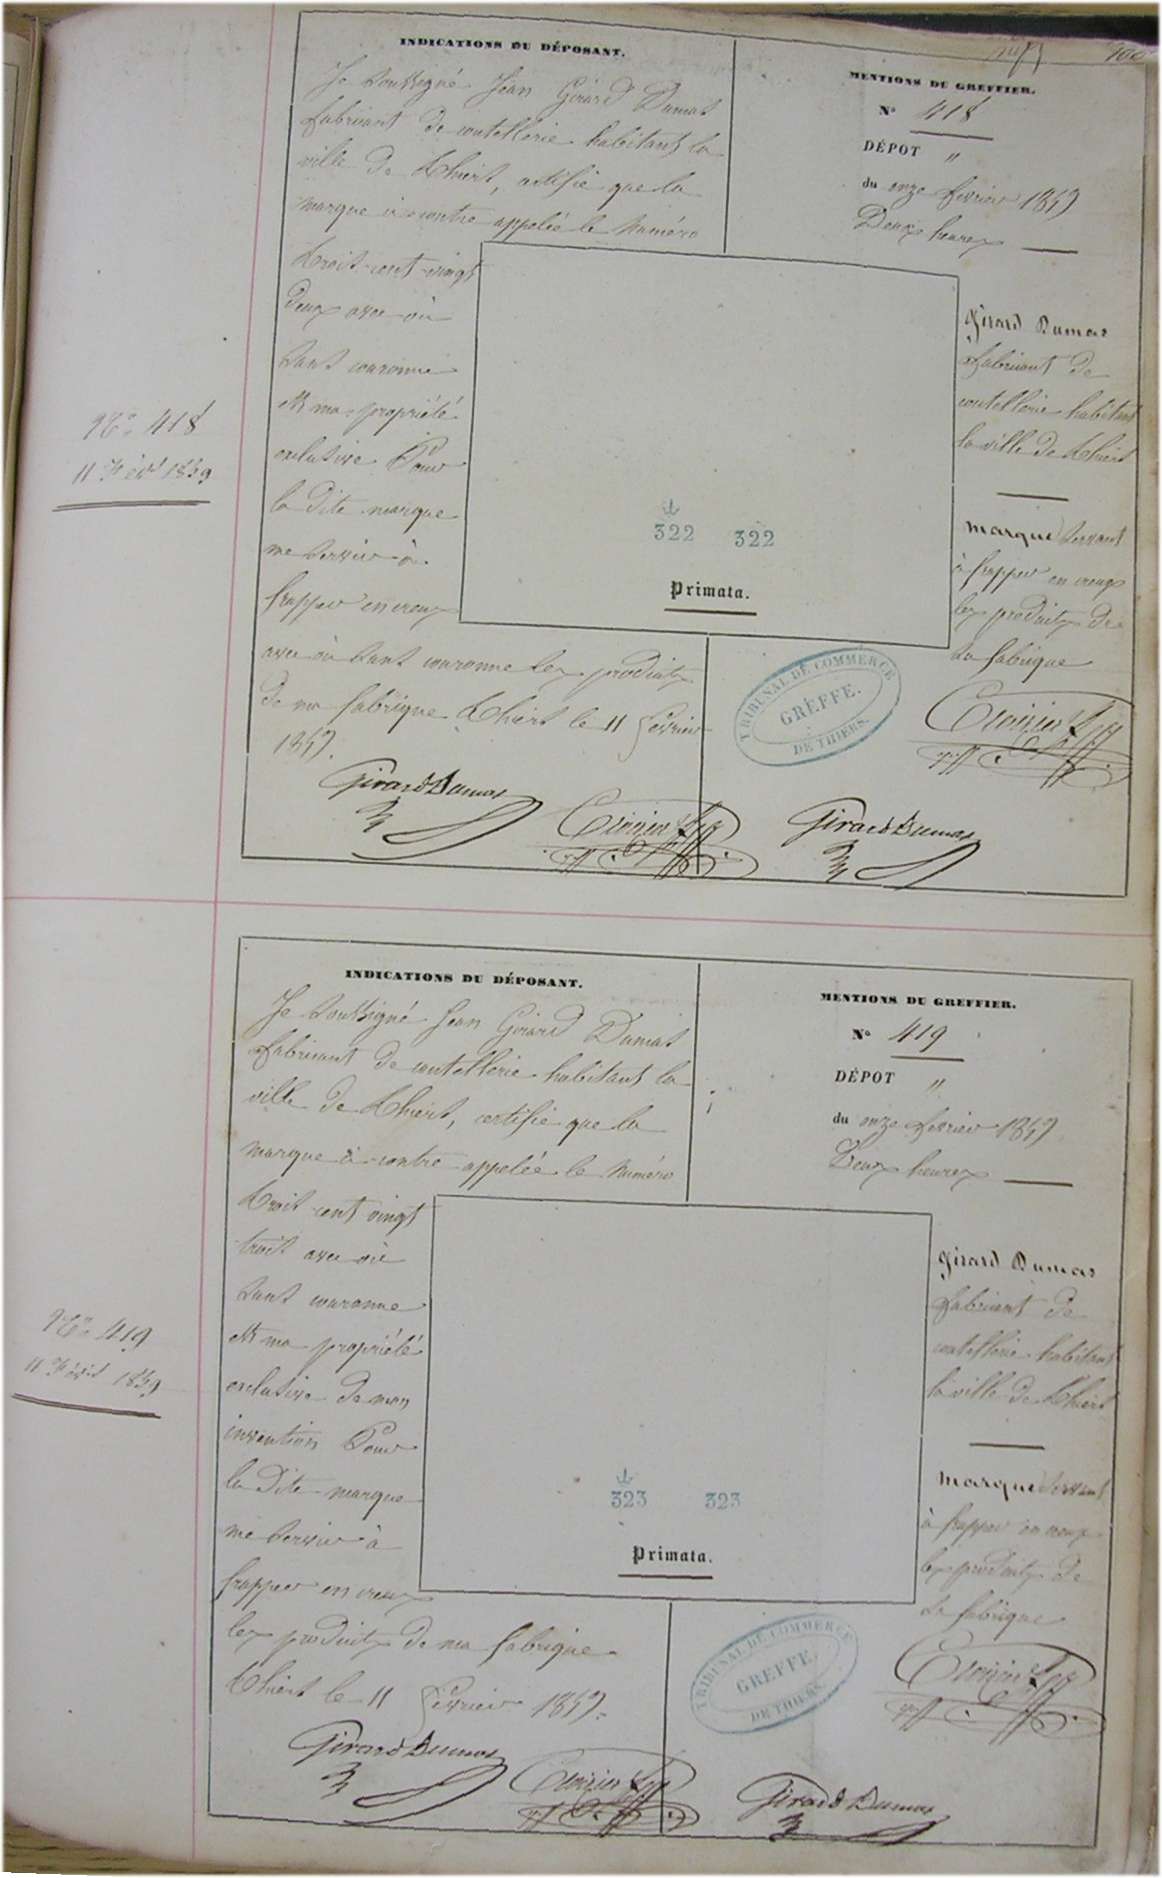 100
INDICATIONS DU DÉPOSANT.
Je soussigné Jean Girard Dumas
fabricant de coutellerie habitant la
ville de Thiers, certifie que la
marque ci contre appelée le Numéro
trois cent vingt
deux avec ou
sans couronne
est ma propriété
exclusive Pour
la dite marque
me servir à
frapper en creux
avec ou sans couronne les produits
de ma fabrique Thiers le 11 février
1859.
Girard Dumas
MENTIONS DU GREFFIER.
N° 418
DÉPOT "
du onze février 1859
Deux heures
Girard Dumas
fabricant de
coutellerie habitant
la ville de Thiers
marque servant
à frapper en creux
les produits de
sa fabrique
322 322
Primata.
TRIBUNAL DE COMMERCE
GREFFE.
DE THIERS.
Girard Dumas
No 418
11 Févr 1859
INDICATIONS DU DÉPOSANT.
Je soussigné Jean Girard Dumas
fabricant de coutellerie habitant la
ville de Thiers, certifie que la
marque ci contre appelée le Numéro
trois cent vingt
trois avec ou
sans couronne
est ma propriété
exclusive de mon
invention Pour
la dite marque
me servir à
frapper en creux
les produits de ma fabrique
Thiers le 11 février 1859.
Girard Dumas
MENTIONS DU GREFFIER.
N° 419
DÉPOT "
du onze février 1859
Deux heures
Girard Dumas
fabricant de
coutellerie habitant
la ville de Thiers
marque servant
à frapper en creux
les produits de
sa fabrique
323 323
Primata.
TRIBUNAL DE COMMERCE
GREFFE.
DE THIERS.
Girard Dumas
No 419
11 Févr 1859